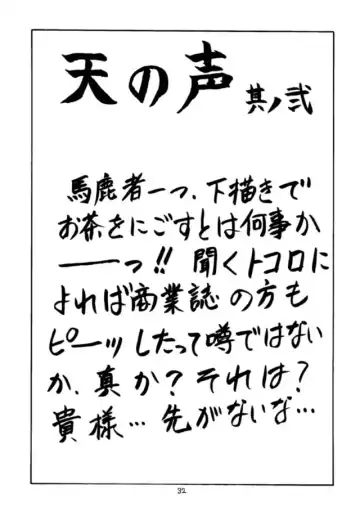 天の声 其ノ弐
馬鹿者ーっ、下描きで
お茶をにごすとは何事か
ーーっ!! 聞くトコロに
よれば商業誌の方も
ピーッしたって噂ではない
か、真か?それは?
貴様…先がないな…
32